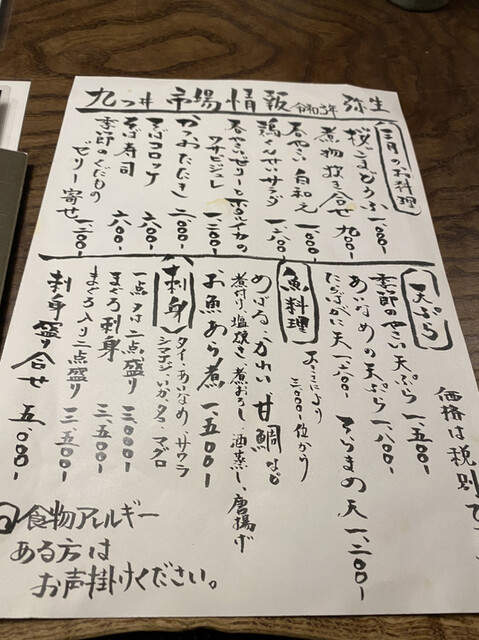 九つ井 市場情報 令和5年 弥生
三月のお料理
桜ごまどうふ 一、〇〇〇-
煮物炊き合せ 九〇〇-
春やさい白和え 一、〇〇〇-
鶏くんせいサラダ 一、二〇〇-
春やさいゼリーとホタルイカのワサビジュレ 一、二〇〇-
かつおたたき 二、〇〇〇-
そばコロッケ 六〇〇-
そば寿司 六〇〇-
季節のくだもの
ゼリー寄せ 一、二〇〇-
天ぷら
季節のやさい天ぷら 一、五〇〇-
あいなめの天ぷら 一、八〇〇-
たらばがに天 一、六〇〇-
ふらまの天 一、二〇〇-
魚料理
大きさにより
三、〇〇〇位から
めばる、かれい、甘鯛など
煮付け、塩焼き、煮おろし、酒蒸し、唐揚げ
お魚あら煮 一、五〇〇-
刺身
タイ、あいなめ、サワラ
シマアジ、いか、タコ、マグロ
一点又は二点盛り 三、〇〇〇-
まぐろ刺身 三、五〇〇-
まぐろ入り二点盛り 三、五〇〇-
刺身盛り合せ 五、〇〇〇-
価格は税別で
食物アレルギー
ある方は
お声掛けください。